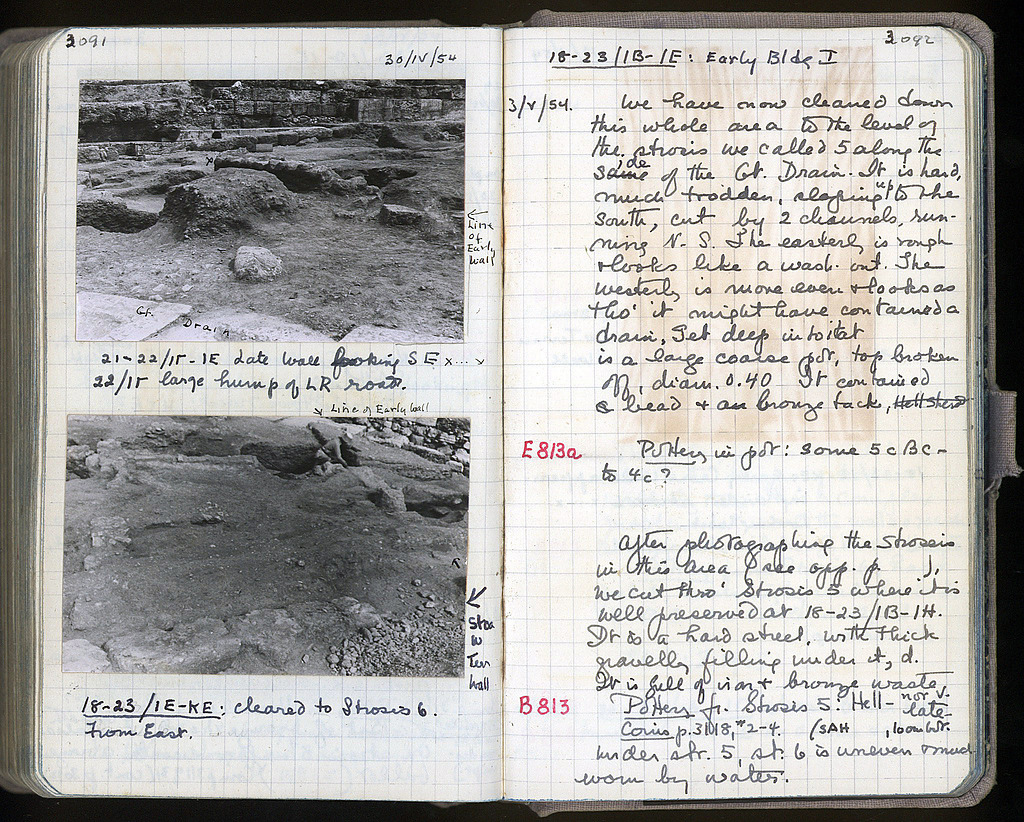 3091
30/IV/54
x
← Line
of
Early
Wall
Gt. Drain
21-22/IΓ-IE Late wall looking SE x...↘
22/IΓ large hump of LR road.
↘ Line of Early Wall
Stoa
Terr
Wall
18-23/IE-KE: cleared to Strosis 6.
From East.
3092
18-23/IB-IE: Early Bldg I
3/V/54. We have now cleaned down
this whole area to the level of
the strosis we called 5 along the
side of the Gt. Drain. It is hard,
much trodden, sloping up to the
south, cut by 2 channels, run-
ning N-S. The easterly is rough
+ looks like a wash-out. The
westerly is more even + looks as
tho' it might have contained a
drain. Set deep into it
is a large coarse pot, top broken
off, diam. 0.40 It contained
a bead + a bronze tack,
E813a Pottery in pot: some 5c BC-
to 4c?
After photographing the Strosis
in this area (see opp. p. ),
we cut thro' Strosis 5 where it is
well preserved at 18-23/IB-IH.
It is a hard street, with thick
gravelly filling under it, d.
It is full of iron + bronze waste.
B813 Pottery fr. Strosis 5: Hell- not v. late-
Coins p. 3118, #2-4. (SAH
Under str. 5, st. 6 is uneven + much
worn by water.